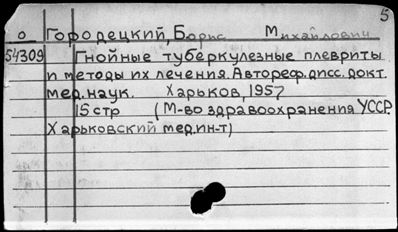 5
о Городецкий, Борис Михайлович
54309 Гнойные туберкулезные плевриты
и методы их лечения. Автореф. дисс. докт.
мед. наук. Харьков, 1957
15 стр (М-во здравоохранения УССР.
Харьковский мед. ин-т)